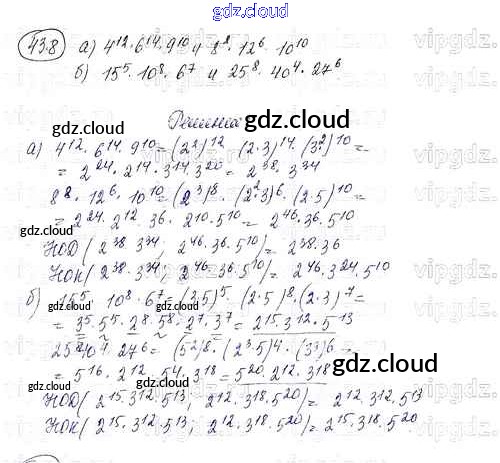 gdz.cloud
438 а) 4¹²·6¹⁴·9¹⁰ и 8⁸·12⁶·10¹⁰
б) 15⁵·10⁸·6⁷ и 25⁸·40⁴·27⁶
Решение
gdz.cloud gdz.cloud
а) 4¹²·6¹⁴·9¹⁰=(2²)¹²·(2·3)¹⁴·(3²)¹⁰=
=2²⁴·2¹⁴·3¹⁴·3²⁰=2³⁸·3³⁴
8⁸·12⁶·10¹⁰=(2³)⁸·(2²·3)⁶·(2·5)¹⁰=
=2²⁴·2¹²·3⁶·2¹⁰·5¹⁰=2⁴⁶·3⁶·5¹⁰
gdz.cloud
НОД(2³⁸·3³⁴; 2⁴⁶·3⁶·5¹⁰)=2³⁸·3⁶
НОК(2³⁸·3³⁴; 2⁴⁶·3⁶·5¹⁰)=2⁴⁶·3²⁴·5¹⁰
б) 15⁵·10⁸·6⁷=(3·5)⁵·(2·5)⁸·(2·3)⁷=
gdz.cloud
=3⁵·5⁵·2⁸·5⁸·2⁷·3⁷=2¹⁵·3¹²·5¹³
25⁸·40⁴·27⁶=(5²)⁸·(2³·5)⁴·(3³)⁶=
gdz.cloud
=5¹⁶·2¹²·5⁴·3¹⁸=5²⁰·2¹²·3¹⁸
gdz.cloud
НОД(2¹⁵·3¹²·5¹³; 2¹²·3¹⁸·5²⁰)=2¹²·3¹²·5¹³
НОК(2¹⁵·3¹²·5¹³; 2¹²·3¹⁸·5²⁰)=2¹⁵·3¹⁸·5²⁰
gdz.cloud